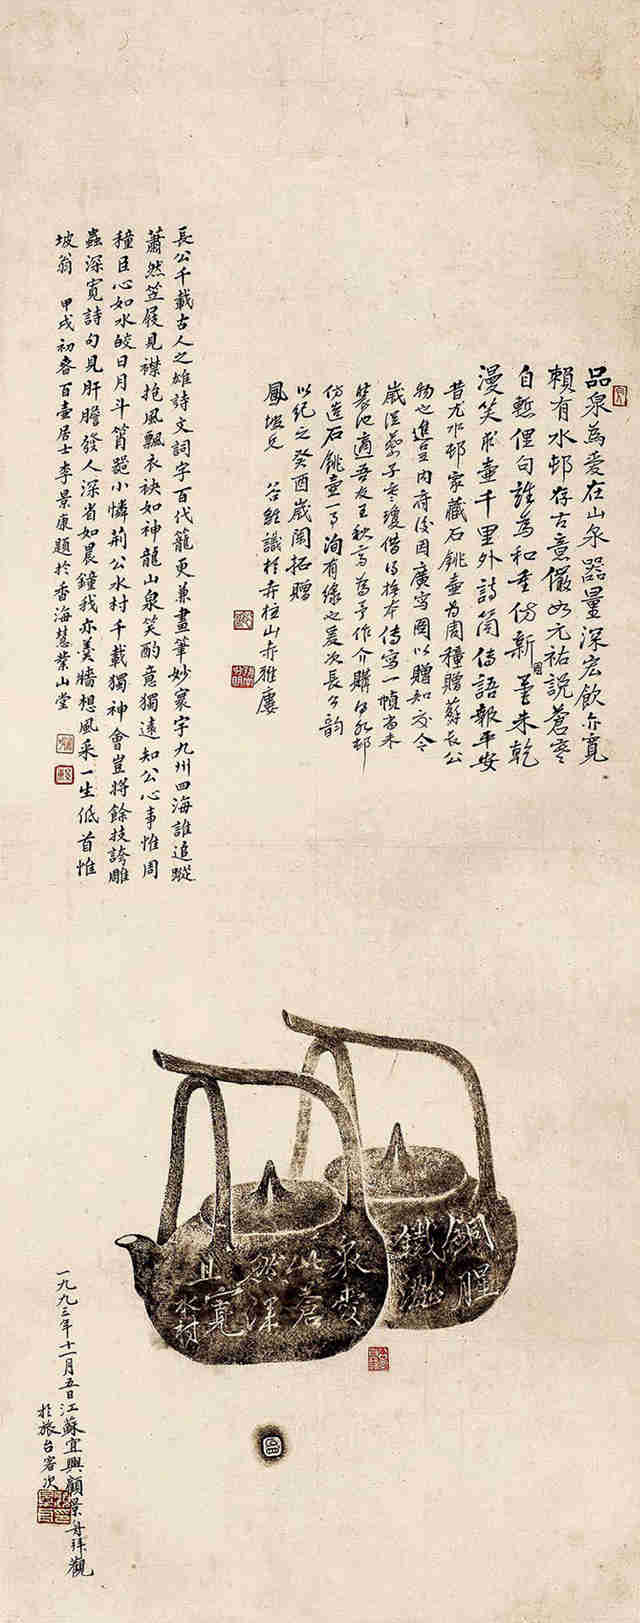 品泉為愛在山泉器量深宏飲亦寬
賴有水邨存古意儼如元祐說蒼寒
自慙俚句誰為和重仿新圖墨未乾
漫笑求壺千里外詩筒傳語報平安
昔尤水邨家藏石銚壺為周穜贈蘇長公
物也進呈內府後因廣寫圖以贈知交今
歲蔡子瓊借得拓本傳寫一幀尚未
裝池適吾友王秋為予作介購得水邨
仿造石銚壺一事洵有緣也爰次長公韵
以紀之癸酉歲闌拓贈
鳳坡兄 谷雛識於赤柱山赤雅廔
長公千載古人之雄詩文詞字百代籠更兼畫筆妙寰宇九州四海誰追蹤
蕭然笠屐見襟抱風飄衣袂如神龍山泉笑酌意獨遠知公心事惟周
穜臣心如水皎日月斗筲器小憐荊公水村千載獨神會豈將餘技誇雕
蟲深寬詩句見肝膽發人深省如晨鐘我亦羹牆想風采一生低首惟
坡翁 甲戌初春百壺居士李景康題於香海慧業山堂
銅腥
鐵澀
泉愛
此蒼
然深
且寬
水村
一九九三年十一月五日江蘇宜興顧景舟拜觀
於旅台客次